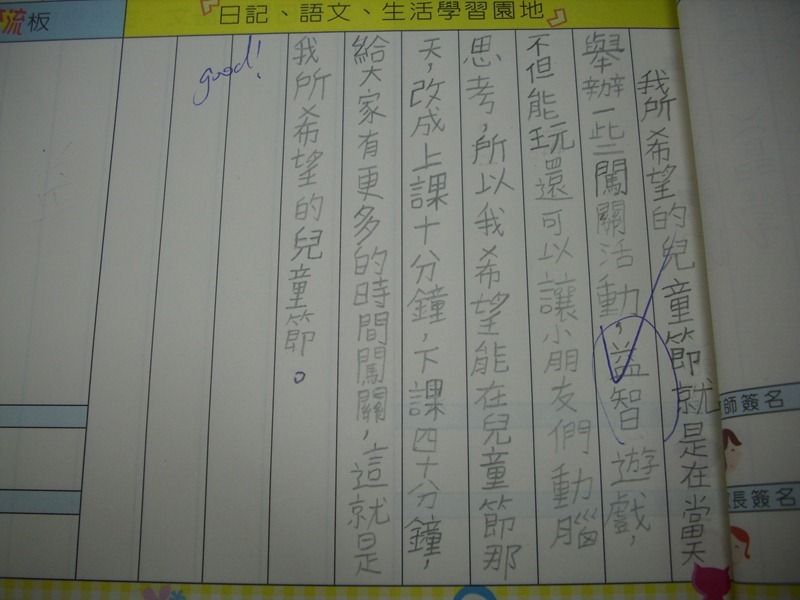 流板
日記、語文、生活學習園地
我所希望的兒童節就是在當天
舉辦一些闖關活動，益智遊戲，
不但能玩還可以讓小朋友們動腦
思考，所以我希望能在兒童節那
天，改成上課十分鐘，下課四十分鐘，
給大家有更多的時間闖關，這就是
我所希望的兒童節。
good!
師簽名
長簽名